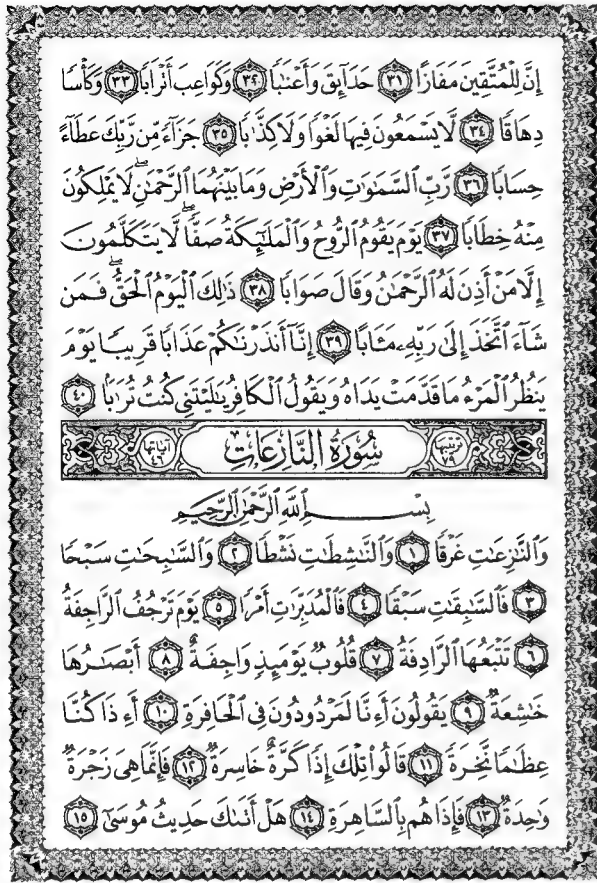 إِنَّ لِلْمُتَّقِينَ مَفَازًا ٣١ حَدَآئِقَ وَأَعْنَٰبًا ٣٢ وَكَوَاعِبَ أَتْرَابًا ٣٣ وَكَأْسًا
دِهَاقًا ٣٤ لَّا يَسْمَعُونَ فِيهَا لَغْوًا وَلَا كِذَّٰبًا ٣٥ جَزَآءً مِّن رَّبِّكَ عَطَآءً
حِسَابًا ٣٦ رَّبِّ ٱلسَّمَٰوَٰتِ وَٱلْأَرْضِ وَمَا بَيْنَهُمَا ٱلرَّحْمَٰنِۖ لَا يَمْلِكُونَ
مِنْهُ خِطَابًا ٣٧ يَوْمَ يَقُومُ ٱلرُّوحُ وَٱلْمَلَٰٓئِكَةُ صَفًّاۖ لَّا يَتَكَلَّمُونَ
إِلَّا مَنْ أَذِنَ لَهُ ٱلرَّحْمَٰنُ وَقَالَ صَوَابًا ٣٨ ذَٰلِكَ ٱلْيَوْمُ ٱلْحَقُّۖ فَمَن
شَآءَ ٱتَّخَذَ إِلَىٰ رَبِّهِۦ مَـَٔابًا ٣٩ إِنَّآ أَنذَرْنَٰكُمْ عَذَابًا قَرِيبًا يَوْمَ
يَنظُرُ ٱلْمَرْءُ مَا قَدَّمَتْ يَدَاهُ وَيَقُولُ ٱلْكَافِرُ يَٰلَيْتَنِى كُنتُ تُرَٰبًۢا ٤٠
ترتيبها ٧٩ سُورَةُ النَّازِعَاتِ آياتها ٤٦
بِسْمِ ٱللَّهِ ٱلرَّحْمَٰنِ ٱلرَّحِيمِ
وَٱلنَّٰزِعَٰتِ غَرْقًا ١ وَٱلنَّٰشِطَٰتِ نَشْطًا ٢ وَٱلسَّٰبِحَٰتِ سَبْحًا
٣ فَٱلسَّٰبِقَٰتِ سَبْقًا ٤ فَٱلْمُدَبِّرَٰتِ أَمْرًا ٥ يَوْمَ تَرْجُفُ ٱلرَّاجِفَةُ
٦ تَتْبَعُهَا ٱلرَّادِفَةُ ٧ قُلُوبٌ يَوْمَئِذٍ وَاجِفَةٌ ٨ أَبْصَٰرُهَا
خَٰشِعَةٌ ٩ يَقُولُونَ أَءِنَّا لَمَرْدُودُونَ فِى ٱلْحَافِرَةِ ١٠ أَءِذَا كُنَّا
عِظَٰمًا نَّخِرَةً ١١ قَالُوا۟ تِلْكَ إِذًا كَرَّةٌ خَاسِرَةٌ ١٢ فَإِنَّمَا هِىَ زَجْرَةٌ
وَٰحِدَةٌ ١٣ فَإِذَا هُم بِٱلسَّاهِرَةِ ١٤ هَلْ أَتَىٰكَ حَدِيثُ مُوسَىٰٓ ١٥